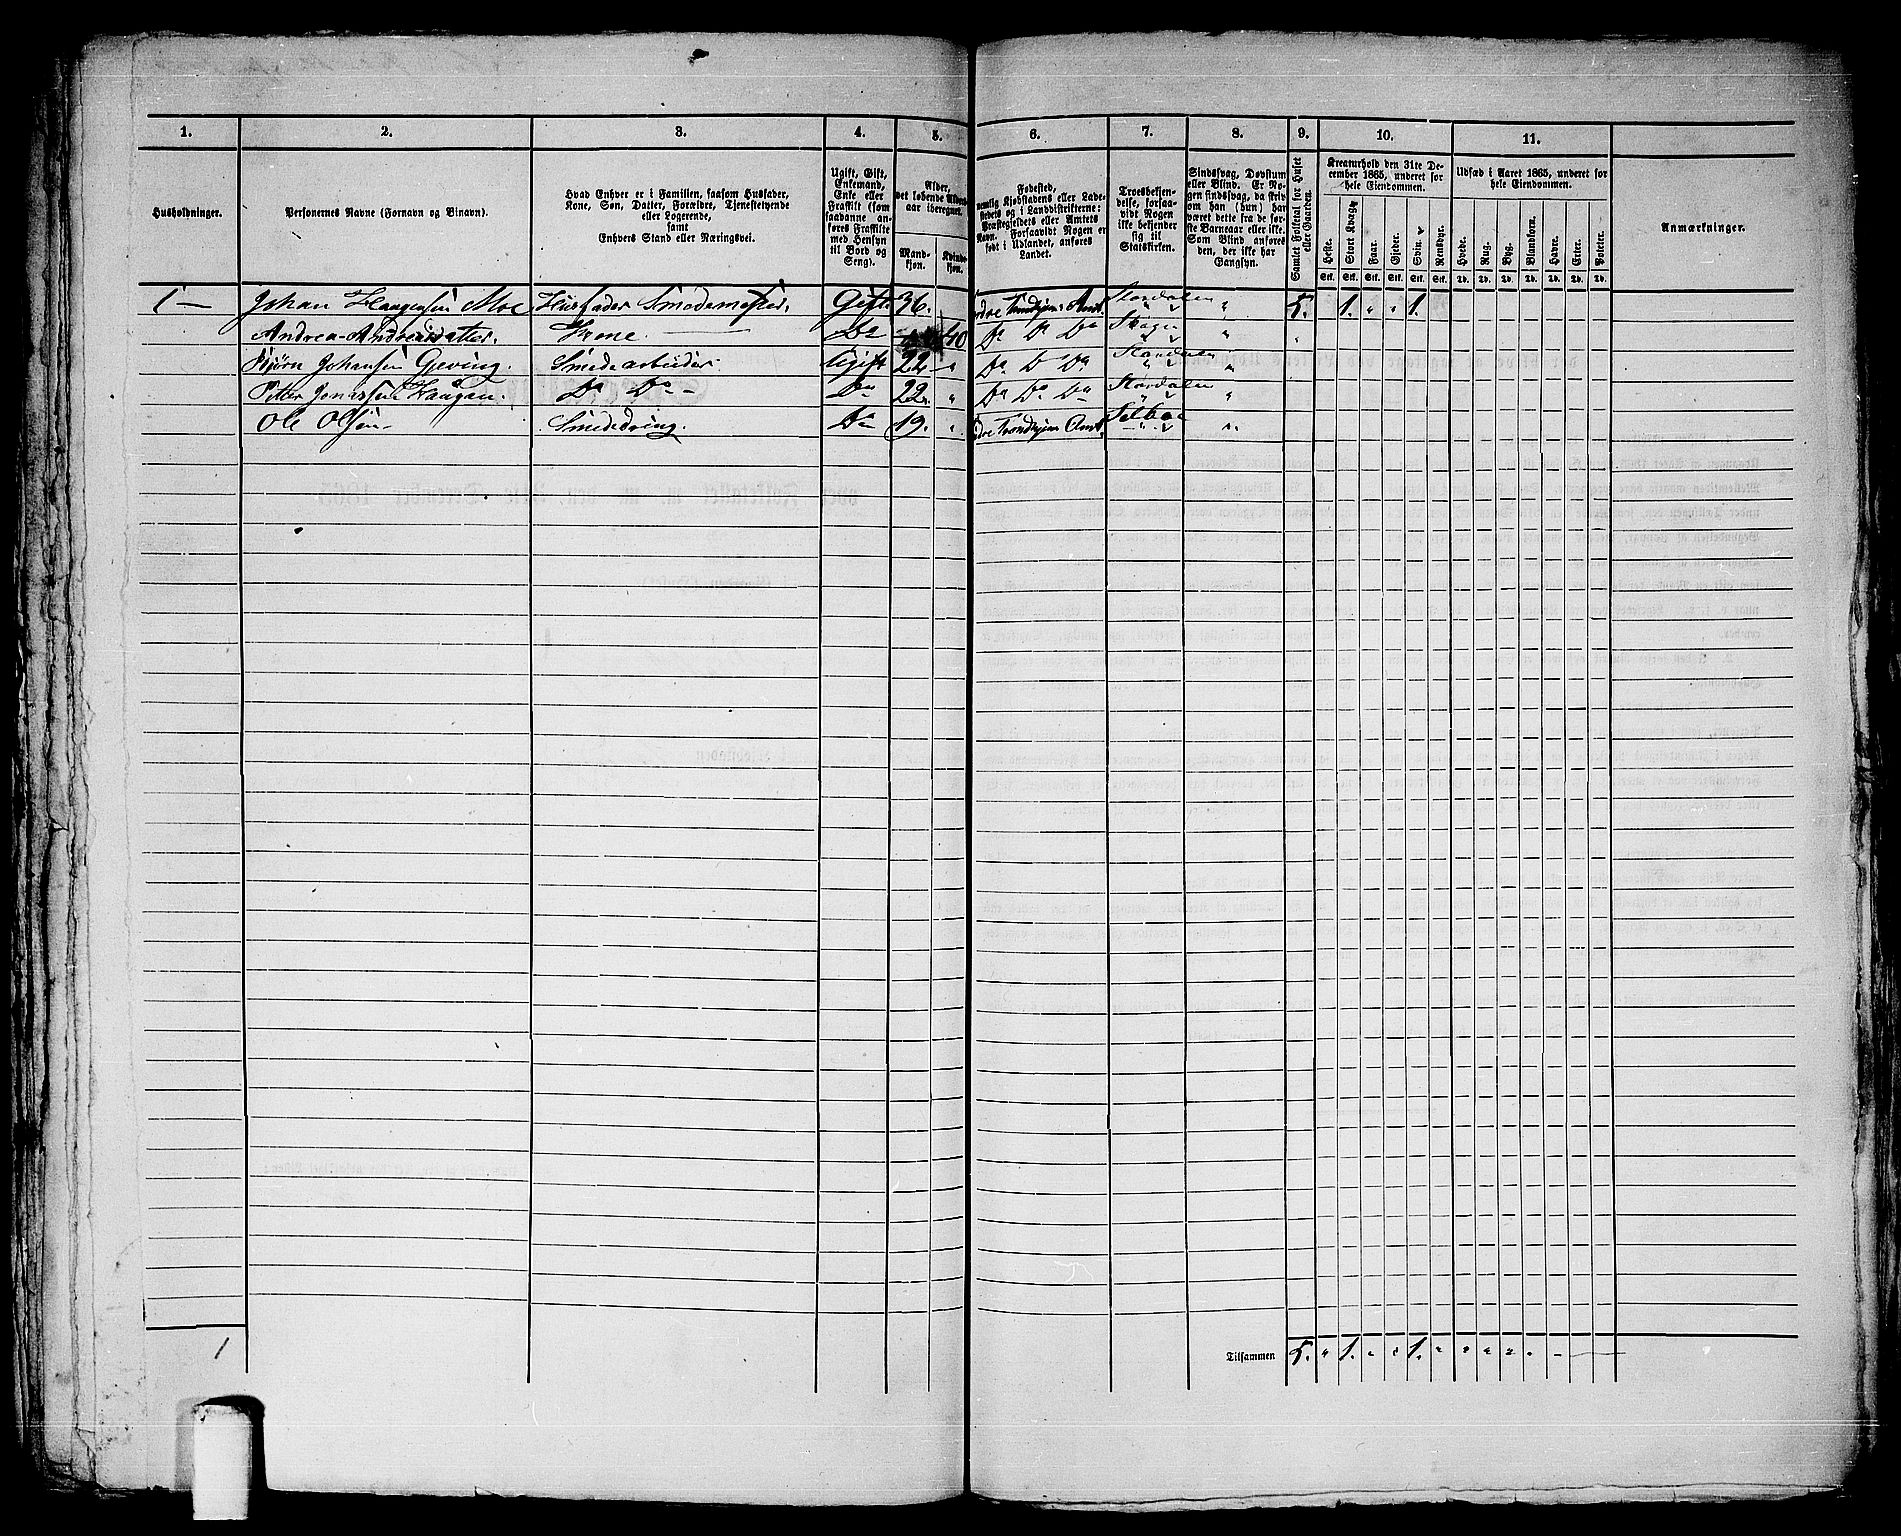 1. 2. 3. 4. 5. 6. 7. 8. 9. 10. 11.
Husholdninger.
Personernes Navne (Fornavn og Binavn).
Hvad Enhver er i Familien, saasom Husfader,
Kone, Søn, Datter, Forældre, Tjenestetyende
eller Logerende,
samt
Enhvers Stand eller Næringsvei.
Ugift, Gift,
Enkemand,
Enke eller
Fraskilt (som
saadanne an-
føres Fraskilte
med Hensyn
til Bord og
Seng).
Alder,
det løbende Alders-
aar iberegnet.
Mand-
kjøn.
Kvinde-
kjøn.
Fødested,
nemlig Kjøbstadens eller Lade-
stedets og i Landdistrikterne:
Præstegjeldets eller Amtets
Navn. Forsaavidt Nogen er
født i Udlandet, anføres
Landet.
Troesbekjen-
delse, forsaa-
vidt Nogen
ikke bekjender
sig til
Statskirken.
Sindssvag, Døvstum
eller Blind. Er No-
gen sindssvag, da skriv
om han (hun) har
været dette fra de før-
ste Barneaar eller ikke.
Som Blind anføres
den, der ikke har
Gangsyn.
Samlet Folketal for Huset
eller Gaarden.
Kreaturhold den 31te De-
cember 1865, underet for
hele Eiendommen.
Heste. Stort Kvæg. Faar. Gjeder. Svin. Rensdyr.
Stk. Stk. Stk. Stk. Stk. Stk.
Udsæd i Aaret 1865, underet for
hele Eiendommen.
Hvede. Rug. Byg. Blandkorn. Havre. Erter. Poteter.
Td. Td. Td. Td. Td. Td. Td.
Anmærkninger.
1 — Johan Haagensen Moe Husfader Smedemester. Gift 36. Trondhjems Amt. Størdalen " 5. 1. " " 1.
Andrea Andreasdatter. Kone — Do 40 Do Do Do Skogn "
Bjørn Johansen Geving. Smedearbeider Ugift 22 " Do Do Do Størdalen "
Petter Jonassen Haugan. Do Do — Do 22. " Do Do Do Størdalen "
Ole Olsen — Smededreng. Do 19. " Trondhjems Amt. Selboe "
1
Tilsammen 5. " 1. " " 1. " " " " " —